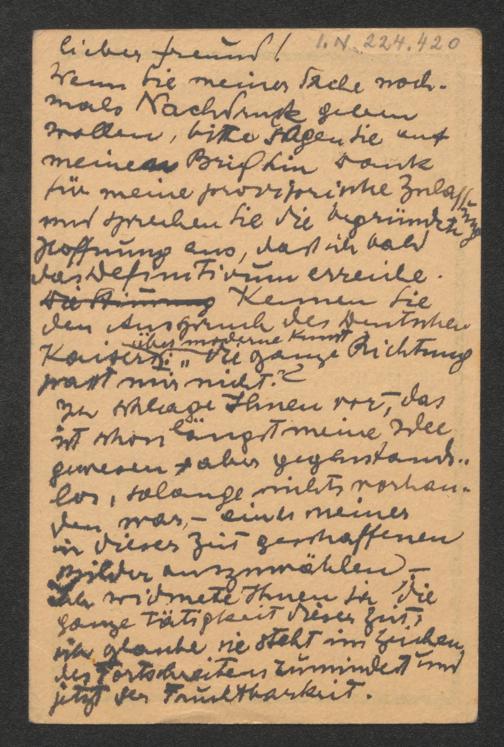 lieber Freund! I.N. 224.420
Wenn Sie meiner Sache noch-
mals Nachdruck geben
wollen, bitte sagen Sie auf
meinen Brief hin Dank
für meine provisorische Zulassung
und sprechen Sie die begründete
Hoffnung aus, daß ich bald
das Definitivum erreiche.
Die Stimmung Kennen Sie
den Ausspruch des Deutschen
über moderne Kunst
Kaisers: „Die ganze Richtung
passt mir nicht."?
Ich schlage Ihnen vor, das
ist schon längst meine Idee
gewesen aber gegenstands-
los, solange nichts vorhan-
den war, – eines meiner
in dieser Zeit geschaffenen
Bilder auszuwählen –
Ich widmete Ihnen ja die
ganze Tätigkeit dieser Zeit,
ich glaube sie steht im Zeichen
des Fortschreitens zumindest und
jetzt der Fruchtbarkeit.